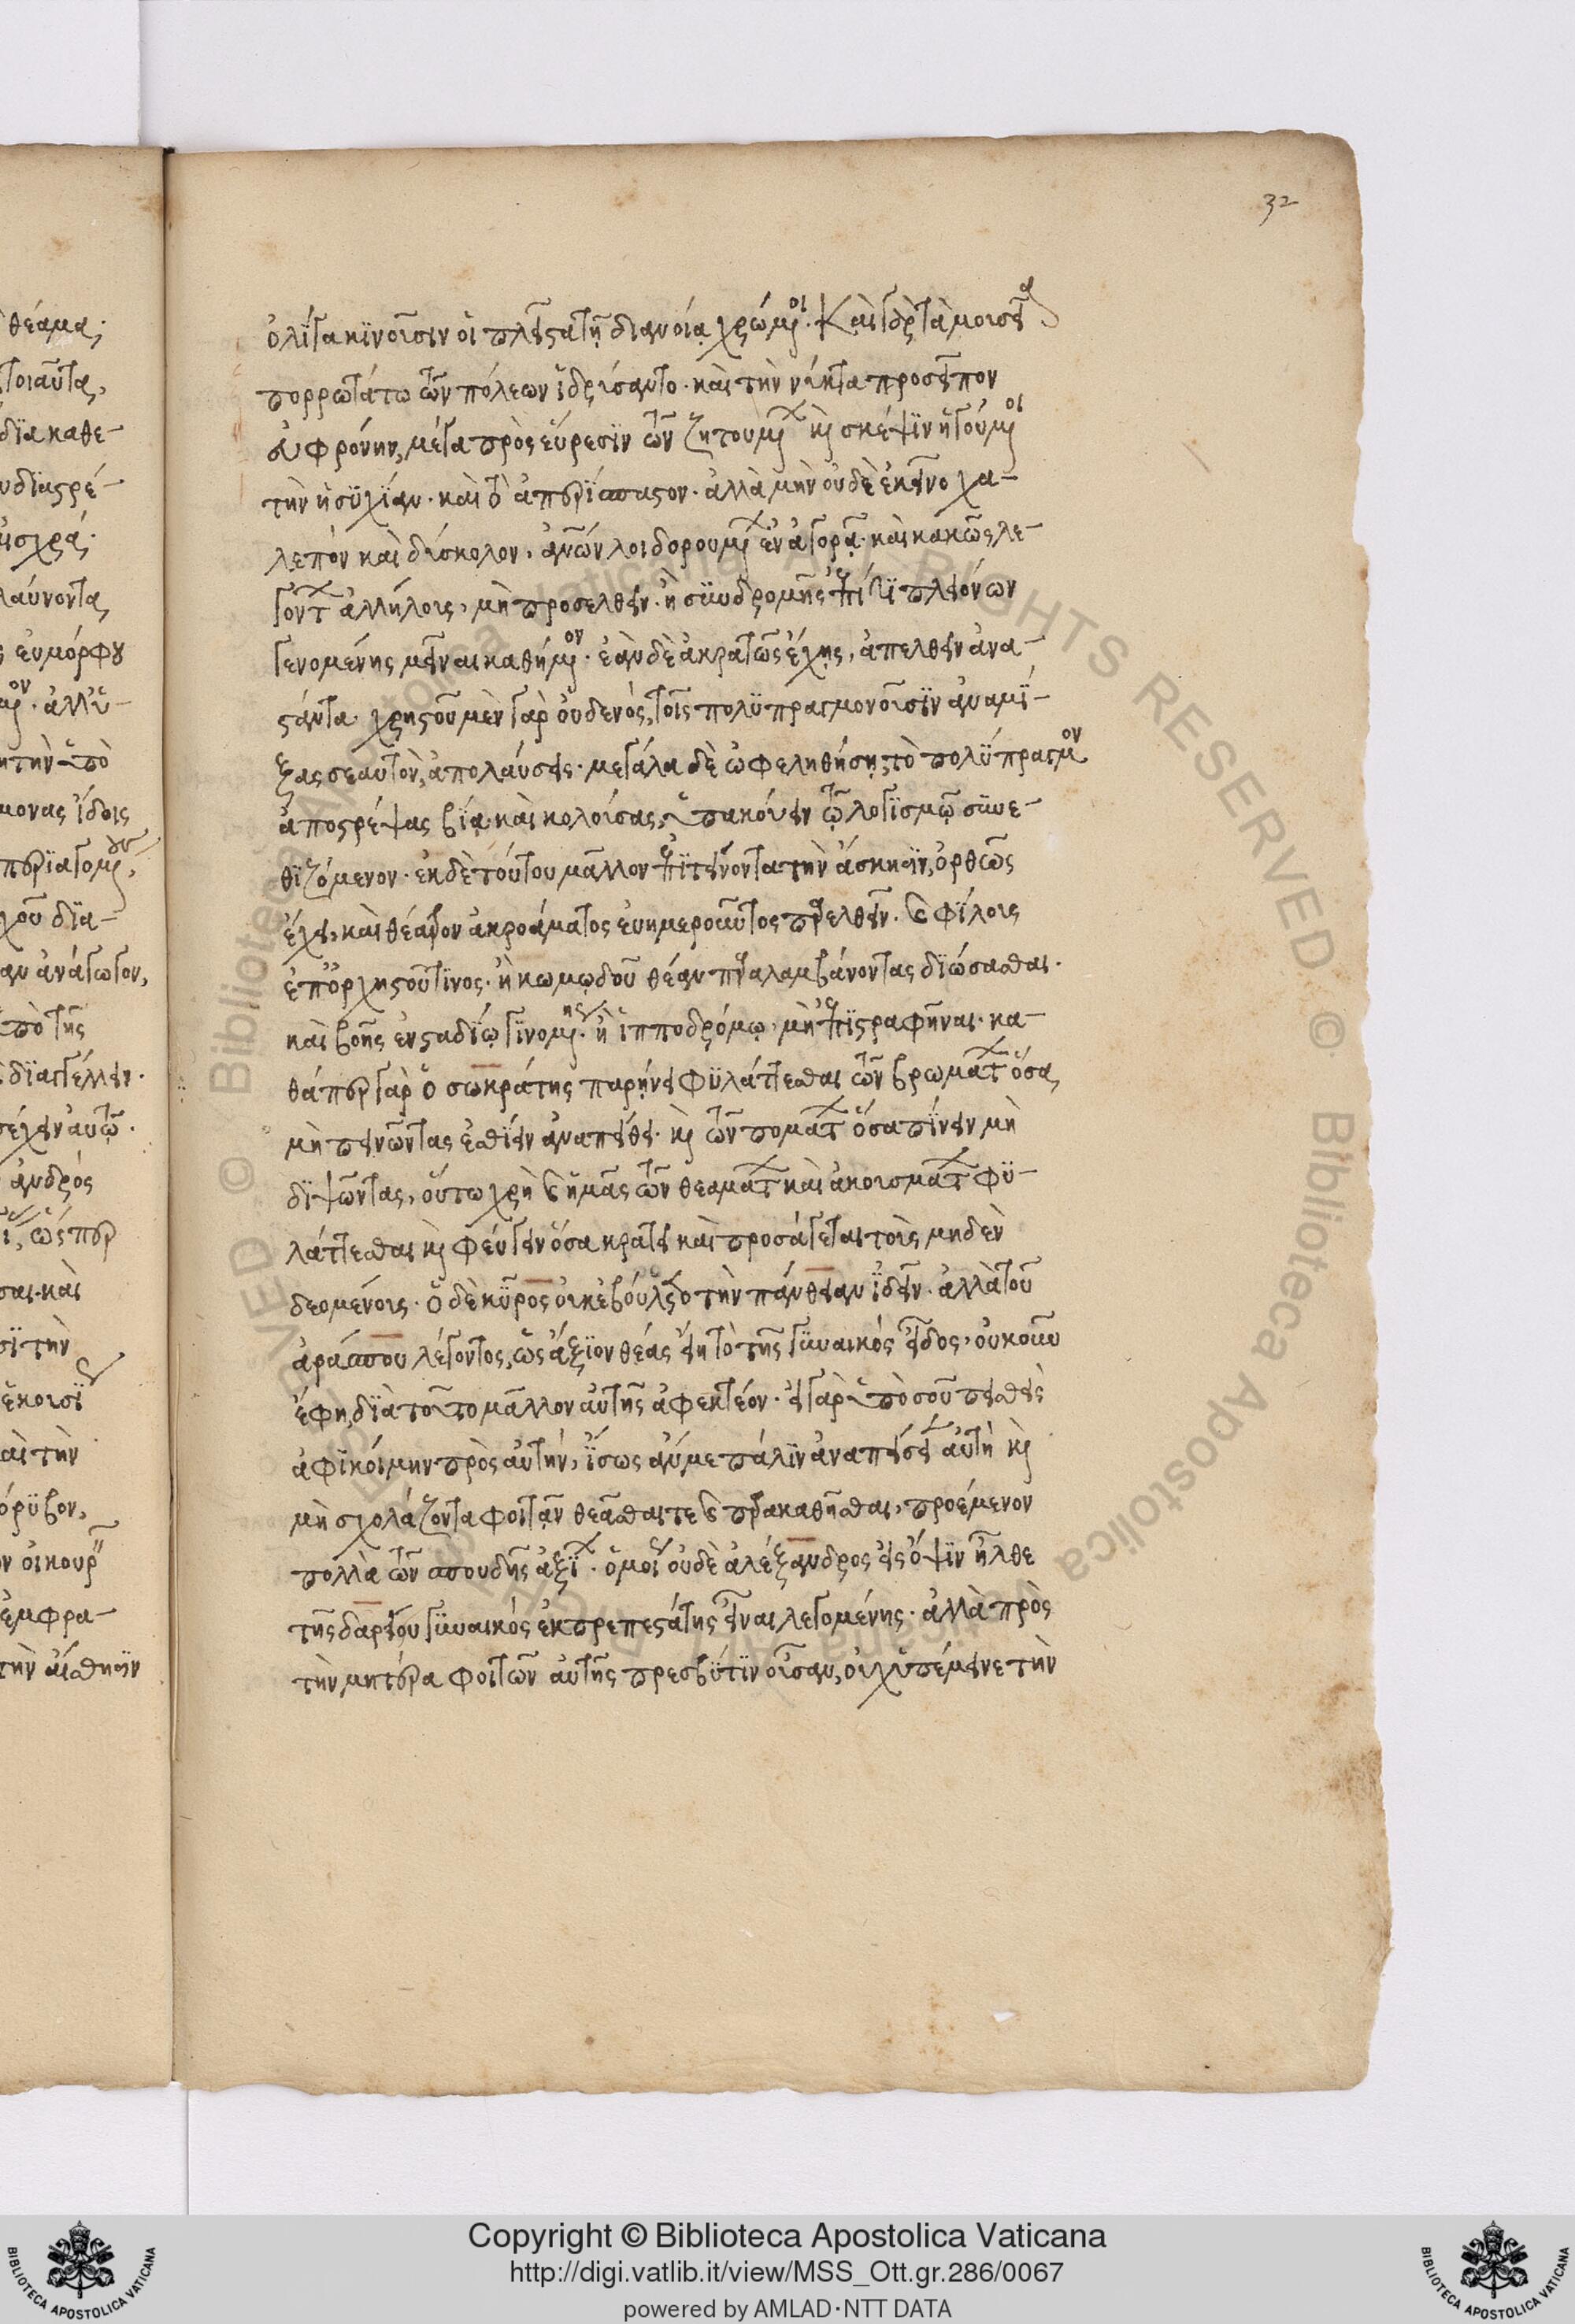 32
ὀλίγα κινοῦσιν οἱ πλεῖστα τῇ διανοίᾳ χρώμενοι· καὶ γὰρ τὰ μουσεῖα
πορρωτάτω τῶν πόλεων ἱδρύσαντο· καὶ τὴν νύκτα προσεῖπον
εὐφρόνην, μέγα πρὸς εὕρεσιν τῶν ζητουμένων καὶ σκέψιν ἡγούμενοι
τὴν ἡσυχίαν· καὶ τὸ ἀπερίσπαστον· ἀλλὰ μὴν οὐδὲ ἐκεῖνο χα-
λεπὸν καὶ δύσκολον, ἀνθρώπων λοιδορουμένων ἐν ἀγορᾷ· καὶ κακῶς λε-
γόντων ἀλλήλοις, μὴ προσελθεῖν· ἢ συνδρομῆς ἐπί τι πλειόνων
γενομένης μεῖναι καθήμενον· ἐὰν δὲ ἀκρατῶς ἔχῃς, ἀπελθεῖν ἀνα-
στάντα· χρηστοῦ μὲν γὰρ οὐδενὸς, τοῖς πολυπραγμονοῦσιν ἀναμί-
ξας σεαυτὸν, ἀπολαύσεις· μεγάλα δὲ ὠφεληθήσῃ, τὸ πολύπραγμον
ἀποστρέψας βίᾳ· καὶ κολούσας, ὑπακούειν τῷ λογισμῷ συνε-
θιζόμενον· ἐκ δὲ τούτου μᾶλλον ἐπιτείνοντα τὴν ἄσκησιν, ὀρθῶς
ἔχει, καὶ θέατρον ἀκροάματος εὐημεροῦντος παρελθεῖν· καὶ φίλους
ἐπ' ὀρχηστοῦ τινος· ἢ κωμῳδοῦ θέαν παραλαμβάνοντας διώσασθαι·
καὶ βοῆς ἐν σταδίῳ γινομένης· ἢ ἱπποδρόμῳ, μὴ ἐπιστραφῆναι· κα-
θάπερ γὰρ ὁ σωκράτης παρῄνει φυλάττεσθαι τῶν βρωμάτων ὅσα
μὴ πεινῶντας ἐσθίειν ἀναπείθει· καὶ τῶν πομάτων ὅσα πίνειν μὴ
διψῶντας, οὕτω χρὴ καὶ ἡμᾶς τῶν θεαμάτων καὶ ἀκουσμάτων φυ-
λάττεσθαι καὶ φεύγειν ὅσα κρατεῖ καὶ προσάγεται τοὺς μηδὲν
δεομένους· ὁ δὲ κῦρος οὐκ ἐβούλετο τὴν πάνθειαν ἰδεῖν· ἀλλὰ τοῦ
ἀράσπου λέγοντος, ὡς ἄξιον θέας εἴη τὸ τῆς γυναικὸς εἶδος, οὐκοῦν
ἔφη, διὰ τοῦτο μᾶλλον αὐτῆς ἀφεκτέον· εἰ γὰρ ὑπὸ σοῦ πεισθεὶς
ἀφικοίμην πρὸς αὐτήν, ἴσως ἄν με πάλιν ἀναπείσειεν αὐτὴ καὶ
μὴ σχολάζοντα φοιτᾶν θεᾶσθαι τε καὶ παρακαθῆσθαι, προέμενον
πολλὰ τῶν σπουδῆς ἀξίων· ὁμοίως οὐδὲ ἀλέξανδρος εἰς ὄψιν ἦλθε
τῆς δαρείου γυναικὸς ἐκπρεπεστάτης εἶναι λεγομένης· ἀλλὰ πρὸς
τὴν μητέρα φοιτῶν αὐτῆς πρεσβῦτιν οὖσαν, οὐχ ὑπέμεινε τὴν
Copyright © Biblioteca Apostolica Vaticana
http://digi.vatlib.it/view/MSS_Ott.gr.286/0067
powered by AMLAD·NTT DATA